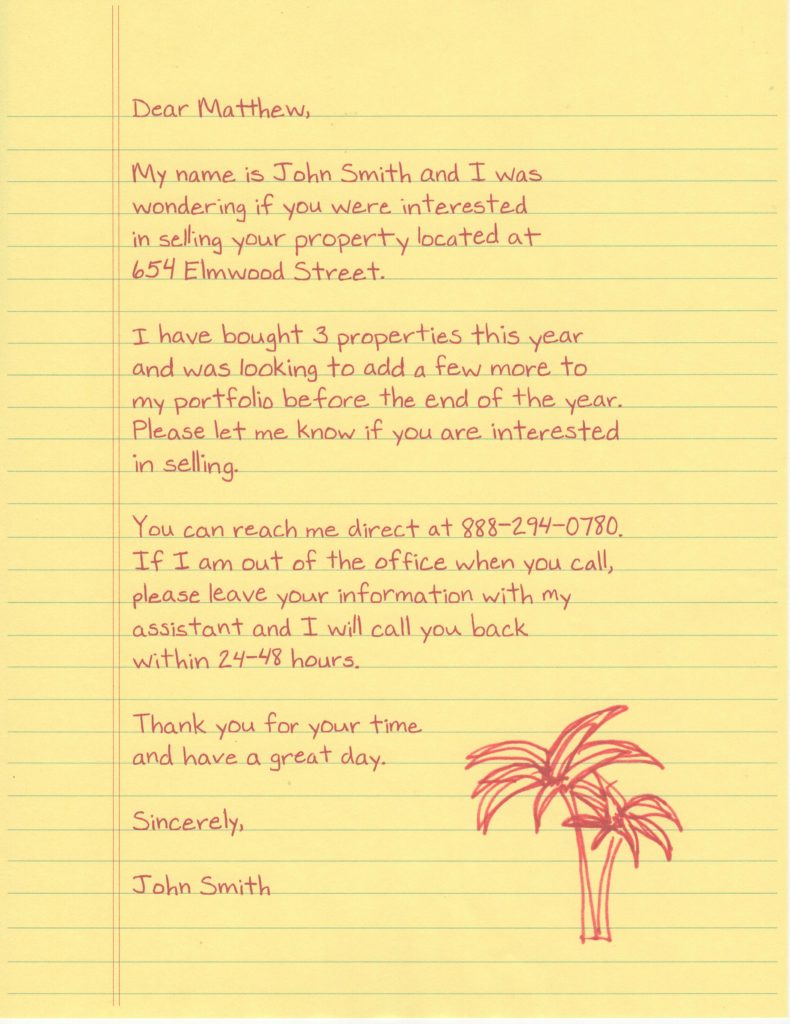 Dear Matthew,
My name is John Smith and I was
wondering if you were interested
in selling your property located at
654 Elmwood Street.
I have bought 3 properties this year
and was looking to add a few more to
my portfolio before the end of the year.
Please let me know if you are interested
in selling.
You can reach me direct at 888-294-0780.
If I am out of the office when you call,
please leave your information with my
assistant and I will call you back
within 24-48 hours.
Thank you for your time
and have a great day.
Sincerely,
John Smith